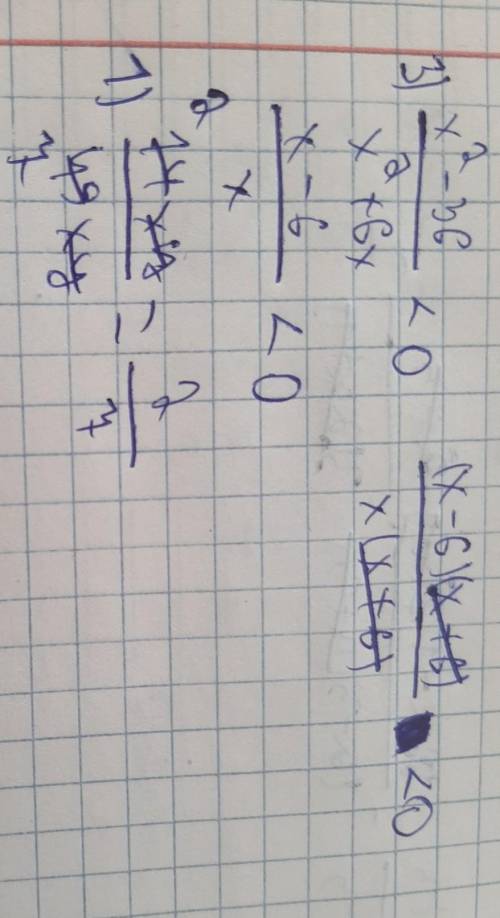 3) x²-36 / x²+6x < 0 (x-6)(x+6) / x(x+6) < 0
x-6 / x < 0
1) 14xy / 49xy = 2 / 7
2
7